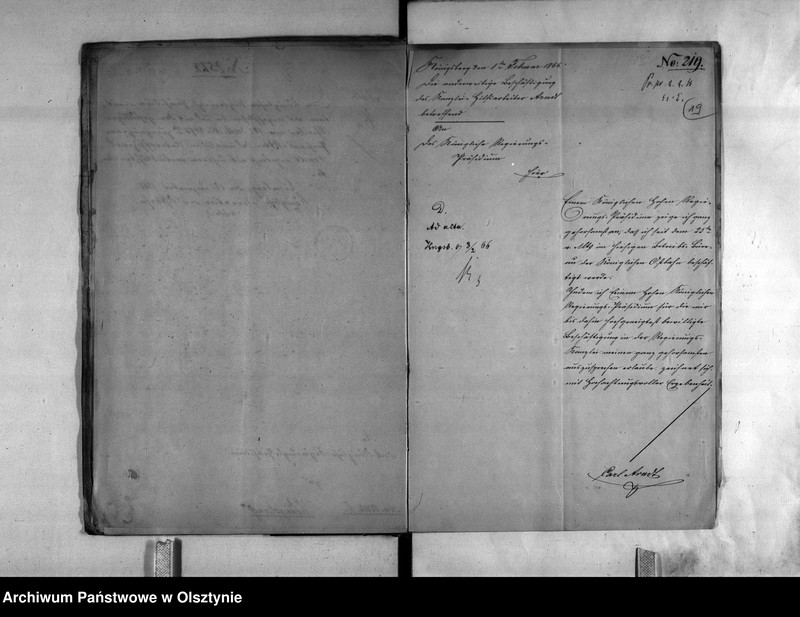 Königsberg den 1ten Februar 1866.
Die anderweitige Beschäftigung
des Kanzlei-Hilfsarbeiter Arndt
betreffend
An
Das Königliche Regierungs-
Präsidium
hier
No: 219.
19
D.
Ad acta.
Kngsb. d. 3/2 66
Einem Königlichen Hohen Regie-
rungs-Präsidium zeige ich ganz
gehorsamst an, daß ich seit dem 22ten
v. Mts im hiesigen Betriebs-Büre-
au der Königlichen Ostbahn beschäf-
tigt werde.
Indem ich Einem Hohen Königlichen
Regierungs-Präsidium für die mir
bis dahin hochgeneigtest bewilligte
Beschäftigung in der Regierungs-
Kanzlei meinen ganz gehorsamsten
auszusprechen erlaube, zeichnet sich
mit Hochachtungsvoller Ergebenheit.
Carl Arndt
Archiwum Państwowe w Olsztynie